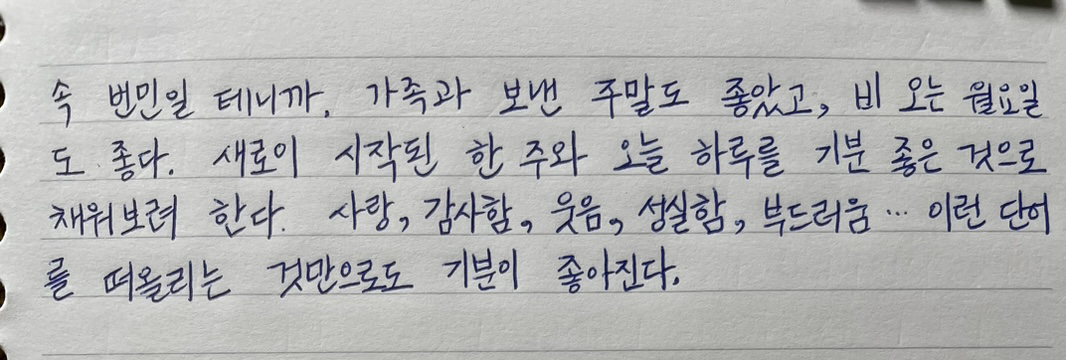 속 번민일 테니까. 가족과 보낸 주말도 좋았고, 비 오는 월요일
도 좋다. 새로이 시작된 한 주와 오늘 하루를 기분 좋은 것으로
채워보려 한다. 사랑, 감사함, 웃음, 성실함, 부드러움… 이런 단어
를 떠올리는 것만으로도 기분이 좋아진다.